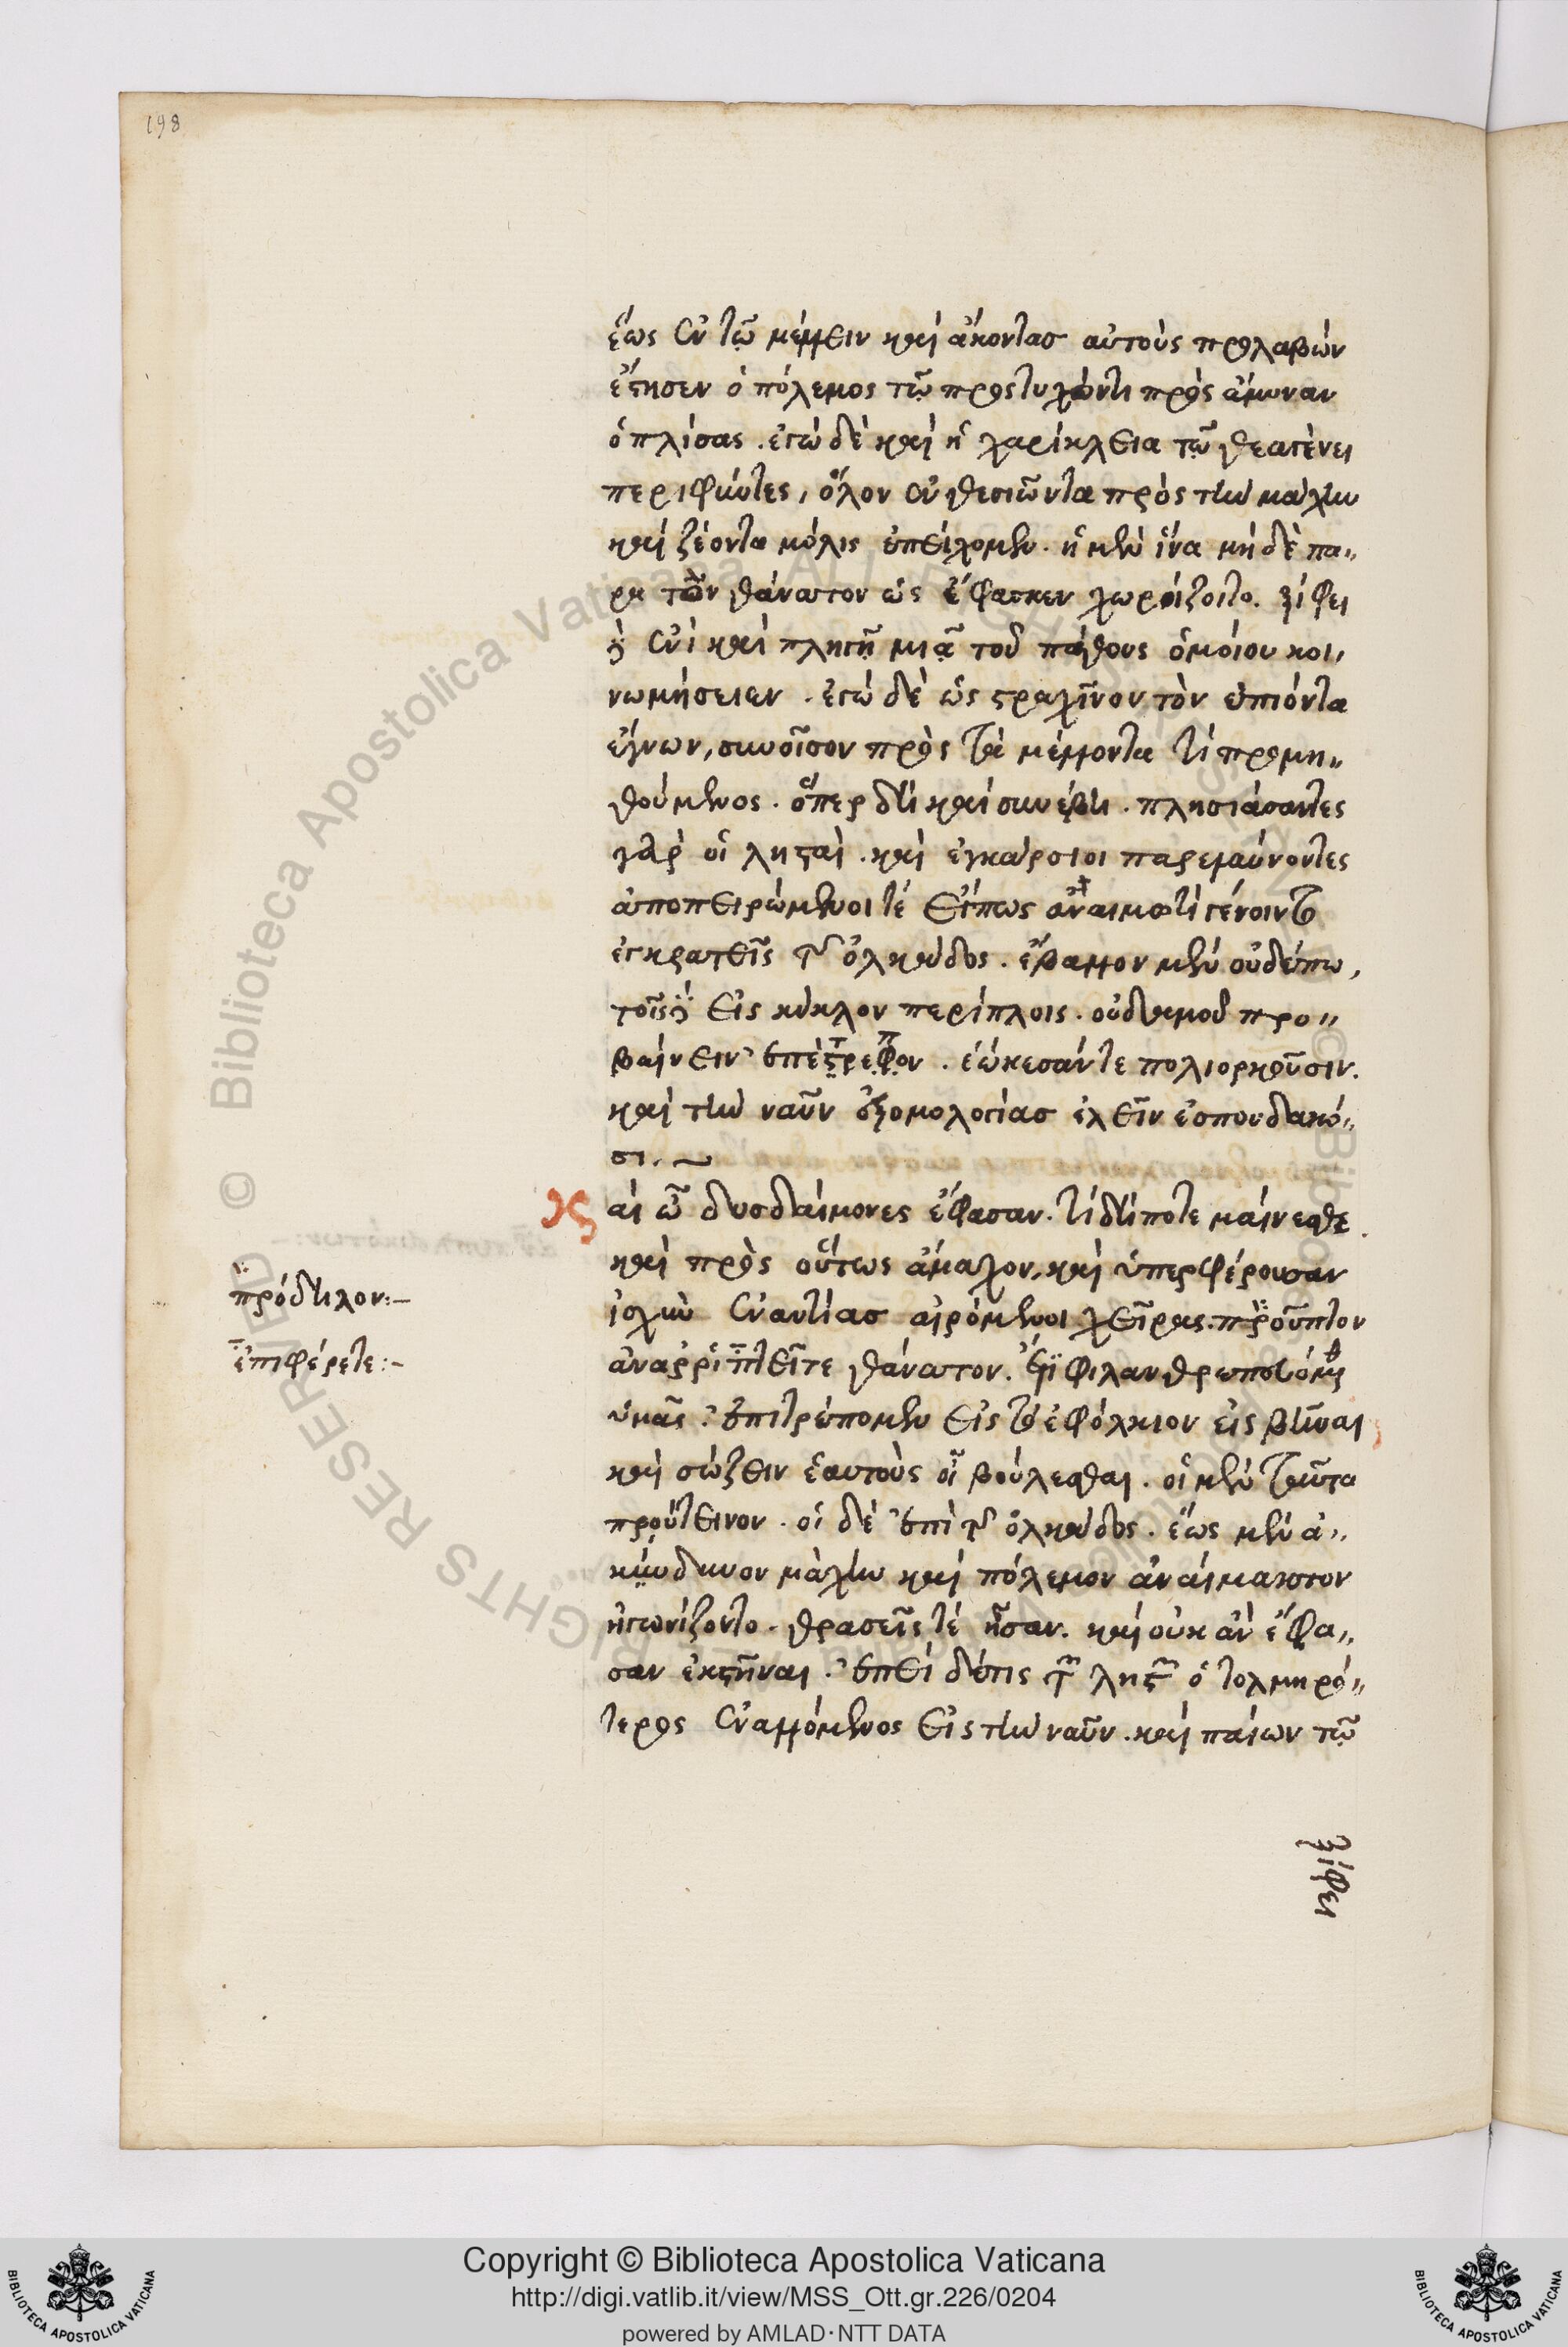 198
ἕως ἐν τῶ μέλλειν καὶ ἄκοντασ αὐτοὺς προλαβὼν
ἔστησεν ὁ πόλεμος τῶ προστυχόντι πρὸς ἄμυναν
ὁπλίσας . ἐγὼ δὲ καὶ ἡ χαρίκλεια τῶ θεαγένει
περιφύντες, ὅλον ἐνθεσιῶντα πρὸς τὴν μάχην
καὶ ζέοντα μόλις ἐπείχομεν . ἡ μὲν ἵνα μὴ δὲ πα„
ρὰ τὸν θάνατον ὡς ἔφασκεν χωρίζοιτο . ξίφει
δ' ἑνὶ καὶ πληγῆ μιᾶ τοῦ πάθους ὁμοίου κοι„
νωνήσειεν . ἐγὼ δὲ ὡς τραχῖνον τὸν ἐπιόντα
ἔγνων, συνοῖσον πρὸς τὰ μέλλοντα τί προμη„
θούμενος . ὅπερ δὴ καὶ συνέβη . πλησιάσαντες
γὰρ οἱ λησταὶ . καὶ ἐγκάρσιοι παρελαύνοντες
ἀποπειρώμενοι τέ εἴπως ἀναιμωτὶ γένοιντο
ἐγκρατεῖς τῆς ὁλκάδος . ἔβαλλον μὲν οὐδέπω,
τοῖς δ' εἰς κύκλον περίπλοις . οὐδαμοῦ προ„
βαίνειν ἐπέτρεπον . ἐώκεσάν τε πολιορκοῦσιν .
καὶ τὴν ναῦν ἐξομολογίασ ἑλεῖν ἐσπουδακό„
σι . ~
κς αἱ ὦ δυσδαίμονες ἔφασαν . τί δήποτε μαίνεσθε .
καὶ πρὸς οὕτως ἄμαχον, καὶ ὑπερφέρουσαν
ἰσχὺν ἐναντίασ αἰρόμενοι χεῖρας . προῦπτον
ἀναρριπτεῖτε θάνατον . φιλανθρωπ
ὑμᾶς . ἐπιτρέπομεν εἰς τὸ ἐφόλκιον εἰσβῆναι
καὶ σώζειν ἑαυτοὺς οἷ βούλεσθαι . οἱ μὲν ταῦτα
προὔτεινον . οἱ δὲ ἐπὶ τῆς ὁλκάδος . ἕως μὲν ἀ„
κίνδυνον μάχην καὶ πόλεμον ἀναίμακτον
ἠγωνίζοντο . θρασεῖς τέ ἦσαν . καὶ οὐκ ἂν ἔφα„
σαν ἐκστῆναι . ἐπεὶ δέ τις τῶν ληστῶν ὁ τολμηρό„
τερος ἐναλλόμενος εἰς τὴν ναῦν . καὶ παίων τῶ
ξίφει
πρόδηλον:–
ἐπιφέρετε:–
Copyright © Biblioteca Apostolica Vaticana
http://digi.vatlib.it/view/MSS_Ott.gr.226/0204
powered by AMLAD·NTT DATA
BIBLIOTECA APOSTOLICA VATICANA
BIBLIOTECA APOSTOLICA VATICANA